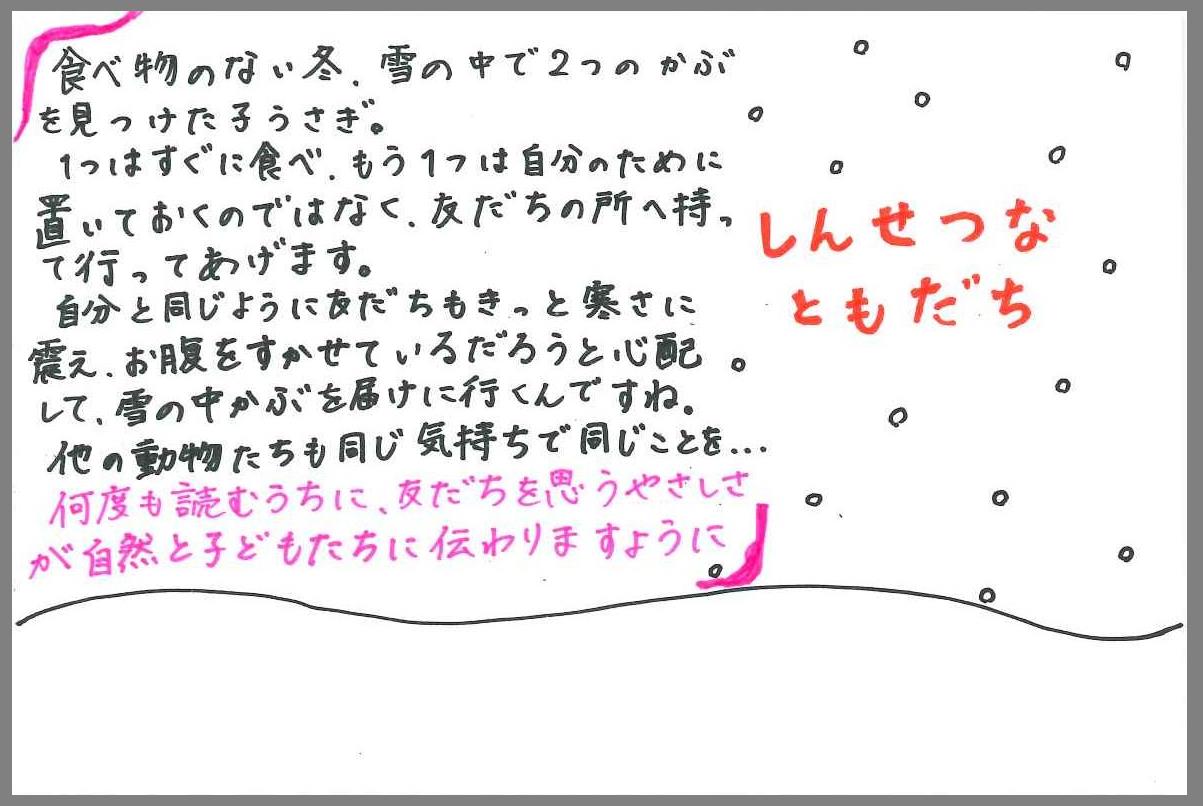 食べ物のない冬、雪の中で2つのかぶ
を見つけた子うさぎ。
1つはすぐに食べ、もう1つは自分のために
置いておくのではなく、友だちの所へ持っ
て行ってあげます。
自分と同じように友だちもきっと寒さに
震え、お腹をすかせているだろうと心配
して、雪の中かぶを届けに行くんですね。
他の動物たちも同じ気持ちで同じことを...
何度も読むうちに、友だちを思うやさしさ
が自然と子どもたちに伝わりますように
しんせつな
ともだち